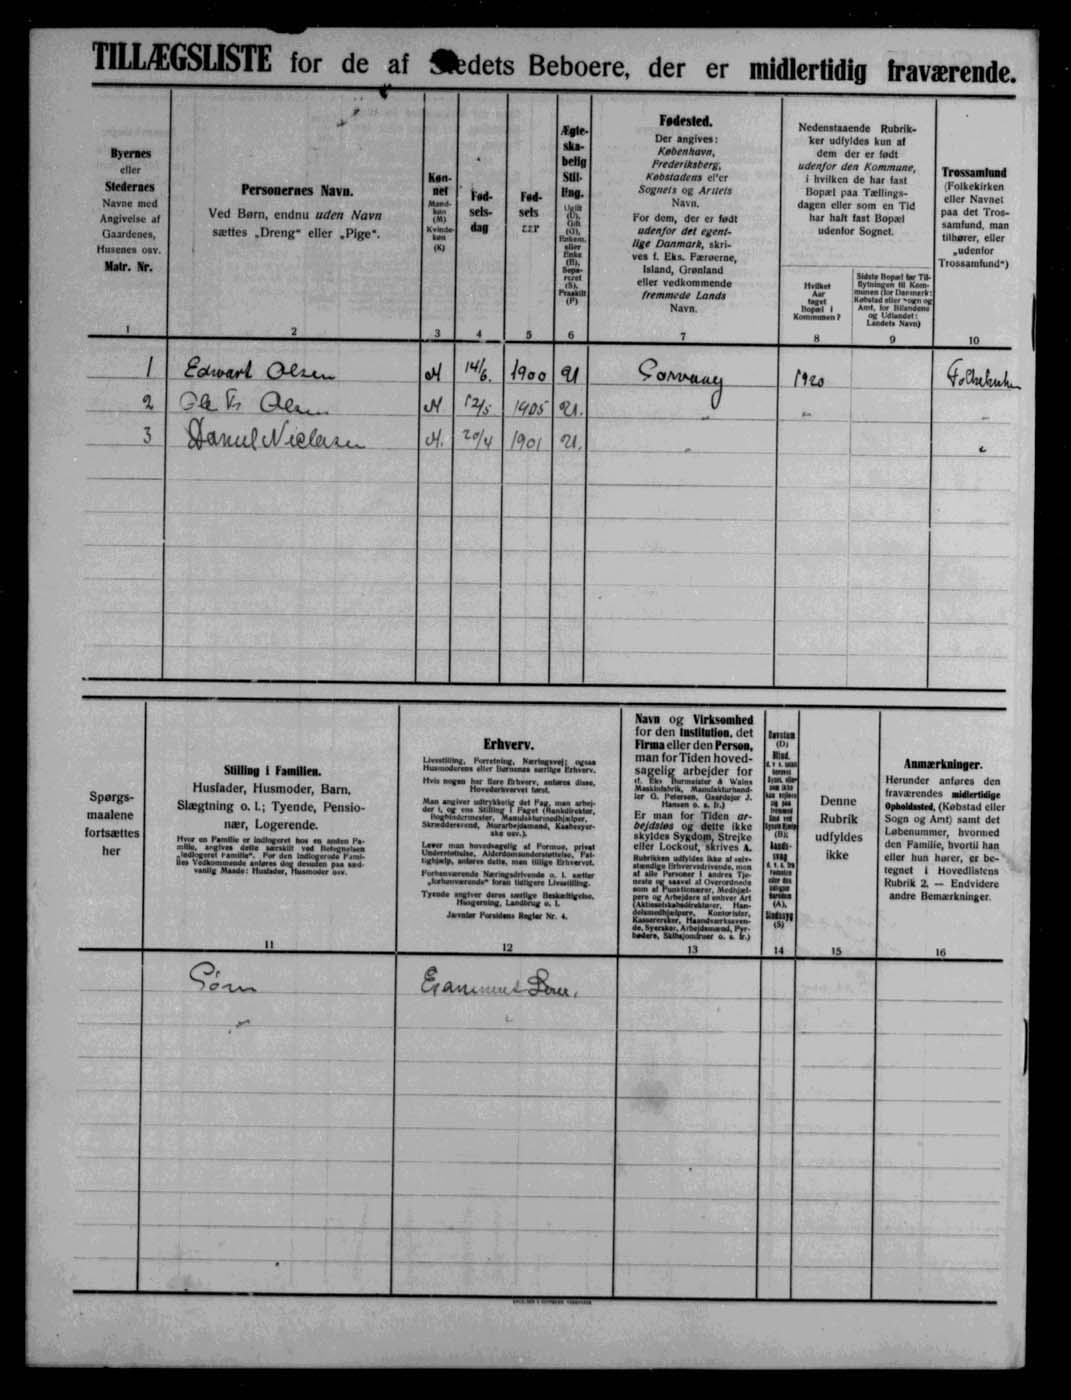 TILLÆGSLISTE for de af Stedets Beboere, der er midlertidig fraværende.
Byernes
eller
Stedernes
Navne med
Angivelse af
Gaardenes,
Husenes osv.
Matr. Nr.
1
Personernes Navn.
Ved Børn, endnu uden Navn
sættes „Dreng“ eller „Pige“.
2
Køn-
net
Mand-
køn
(M)
Kvinde-
køn
(K)
3
Fød-
sels-
dag
4
Fød-
sels
aar
5
Ægte-
ska-
belig
Stil-
ling.
Ugift
(U),
Gift
(G),
Enkem.
eller
Enke
(E),
Sepa-
reret
(S),
Fraskilt
(F)
6
Fødested.
Der angives:
København,
Frederiksberg,
Købstadens eller
Sognets og Amtets
Navn.
For dem, der er født
udenfor det egent-
lige Danmark, skri-
ves f. Eks. Færøerne,
Island, Grønland
eller vedkommende
fremmede Lands
Navn.
7
Nedenstaaende Rubrik-
ker udfyldes kun af
dem der er født
udenfor den Kommune,
i hvilken de har fast
Bopæl paa Tællings-
dagen eller som en Tid
har haft fast Bopæl
udenfor Sognet.
Hvilket
Aar
taget
Bopæl i
Kommunen?
8
Sidste Bopæl før Til-
flytningen til Kom-
munen (for Danmark:
Købstad eller Sogn og
Amt, for Bilandene
og Udlandet:
Landets Navn)
9
Trossamfund
(Folkekirken
eller Navnet
paa det Tros-
samfund, man
tilhører, eller
„udenfor
Trossamfund“)
10
1 Edwart Olsen M 14/6. 1900 U Sorvaag 1920
2 Olsen M 12/5 1905 U. „ „ „
3 Nielsen M. 20/4 1901 U. „ „
Spørgs-
maalene
fortsættes
her
Stilling i Familien.
Husfader, Husmoder, Barn,
Slægtning o. l.; Tyende, Pensio-
nær, Logerende.
Hvor en Familie er indlogeret hos en anden Fa-
milie, angives dette særskilt ved Betegnelsen
„indlogeret Familie“. For den indlogerede Fami-
lies Vedkommende anføres dog desuden paa sæd-
vanlig Maade: Husfader, Husmoder osv.
11
Erhverv.
Livsstilling, Forretning, Næringsvej; ogsaa
Husmoderens eller Børnenes særlige Erhverv.
Hvis nogen har flere Erhverv, anføres disse,
Hovederhvervet først.
Man angiver udtrykkelig det Fag, man arbej-
der i, og ens Stilling i Faget (Bankdirektør,
Bogbindermester, Manufakturmedhjælper,
Skræddersvend, Murarbejdsmand, Kaabesyer-
ske osv.).
Lever man hovedsagelig af Formue, privat
Understøttelse, Alderdomsunderstøttelse, Fat-
tighjælp, anføres dette, man tillige Erhvervet.
Forhenværende Næringsdrivende o. l. sætter
„forhenværende“ foran tidligere Livsstilling.
Tyende angiver deres særlige Beskæftigelse,
Husgerning, Landbrug o. l.
Jævnfør Forsidens Regler Nr. 4.
12
Navn og Virksomhed
for den Institution, det
Firma eller den Person,
man for Tiden hoved-
sagelig arbejder for
(f. Eks. Burmeister & Wains
Maskinfabrik, Manufakturhand-
ler G. Petersen, Gaardejer J.
Hansen o. s. fr.)
Er man for Tiden ar-
bejdsløs og dette ikke
skyldes Sygdom, Strejke
eller Lockout, skrives A.
Rubrikken udfyldes ikke af selv-
stændige Erhvervsdrivende, men
af alle Personer i andres Tje-
neste og saavel af Overordnede
som af Funktionærer, Medhjæl-
pere og Arbejdere af enhver Art
(Aktieselskabsdirektører, Han-
delsmedhjælpere, Kontorister,
Kassererske, Haandværkssven-
de, Syersker, Arbejdsmænd, Fyr-
bødere, Skibsjomfruer o. s. fr.)
13
14
Denne
Rubrik
udfyldes
ikke
15
Anmærkninger.
Herunder anføres den
fraværendes midlertidige
Opholdssted, (Købstad eller
Sogn og Amt) samt det
Løbenummer, hvormed
den Familie, hvortil han
eller hun hører, er be-
tegnet i Hovedlistens
Rubrik 2. — Endvidere
andre Bemærkninger.
16
Søn
„ „